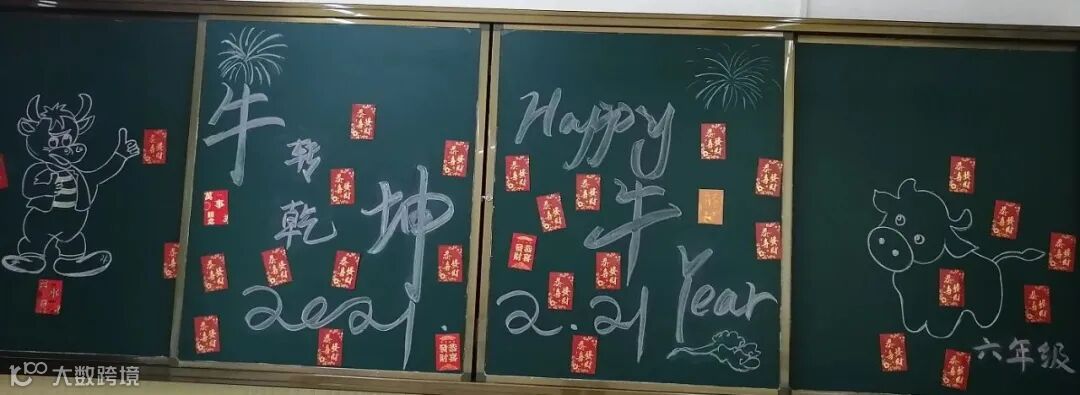 牛转乾坤
2021.
Happy
牛
Year
2.21
六年级
恭喜發财
大数跨境